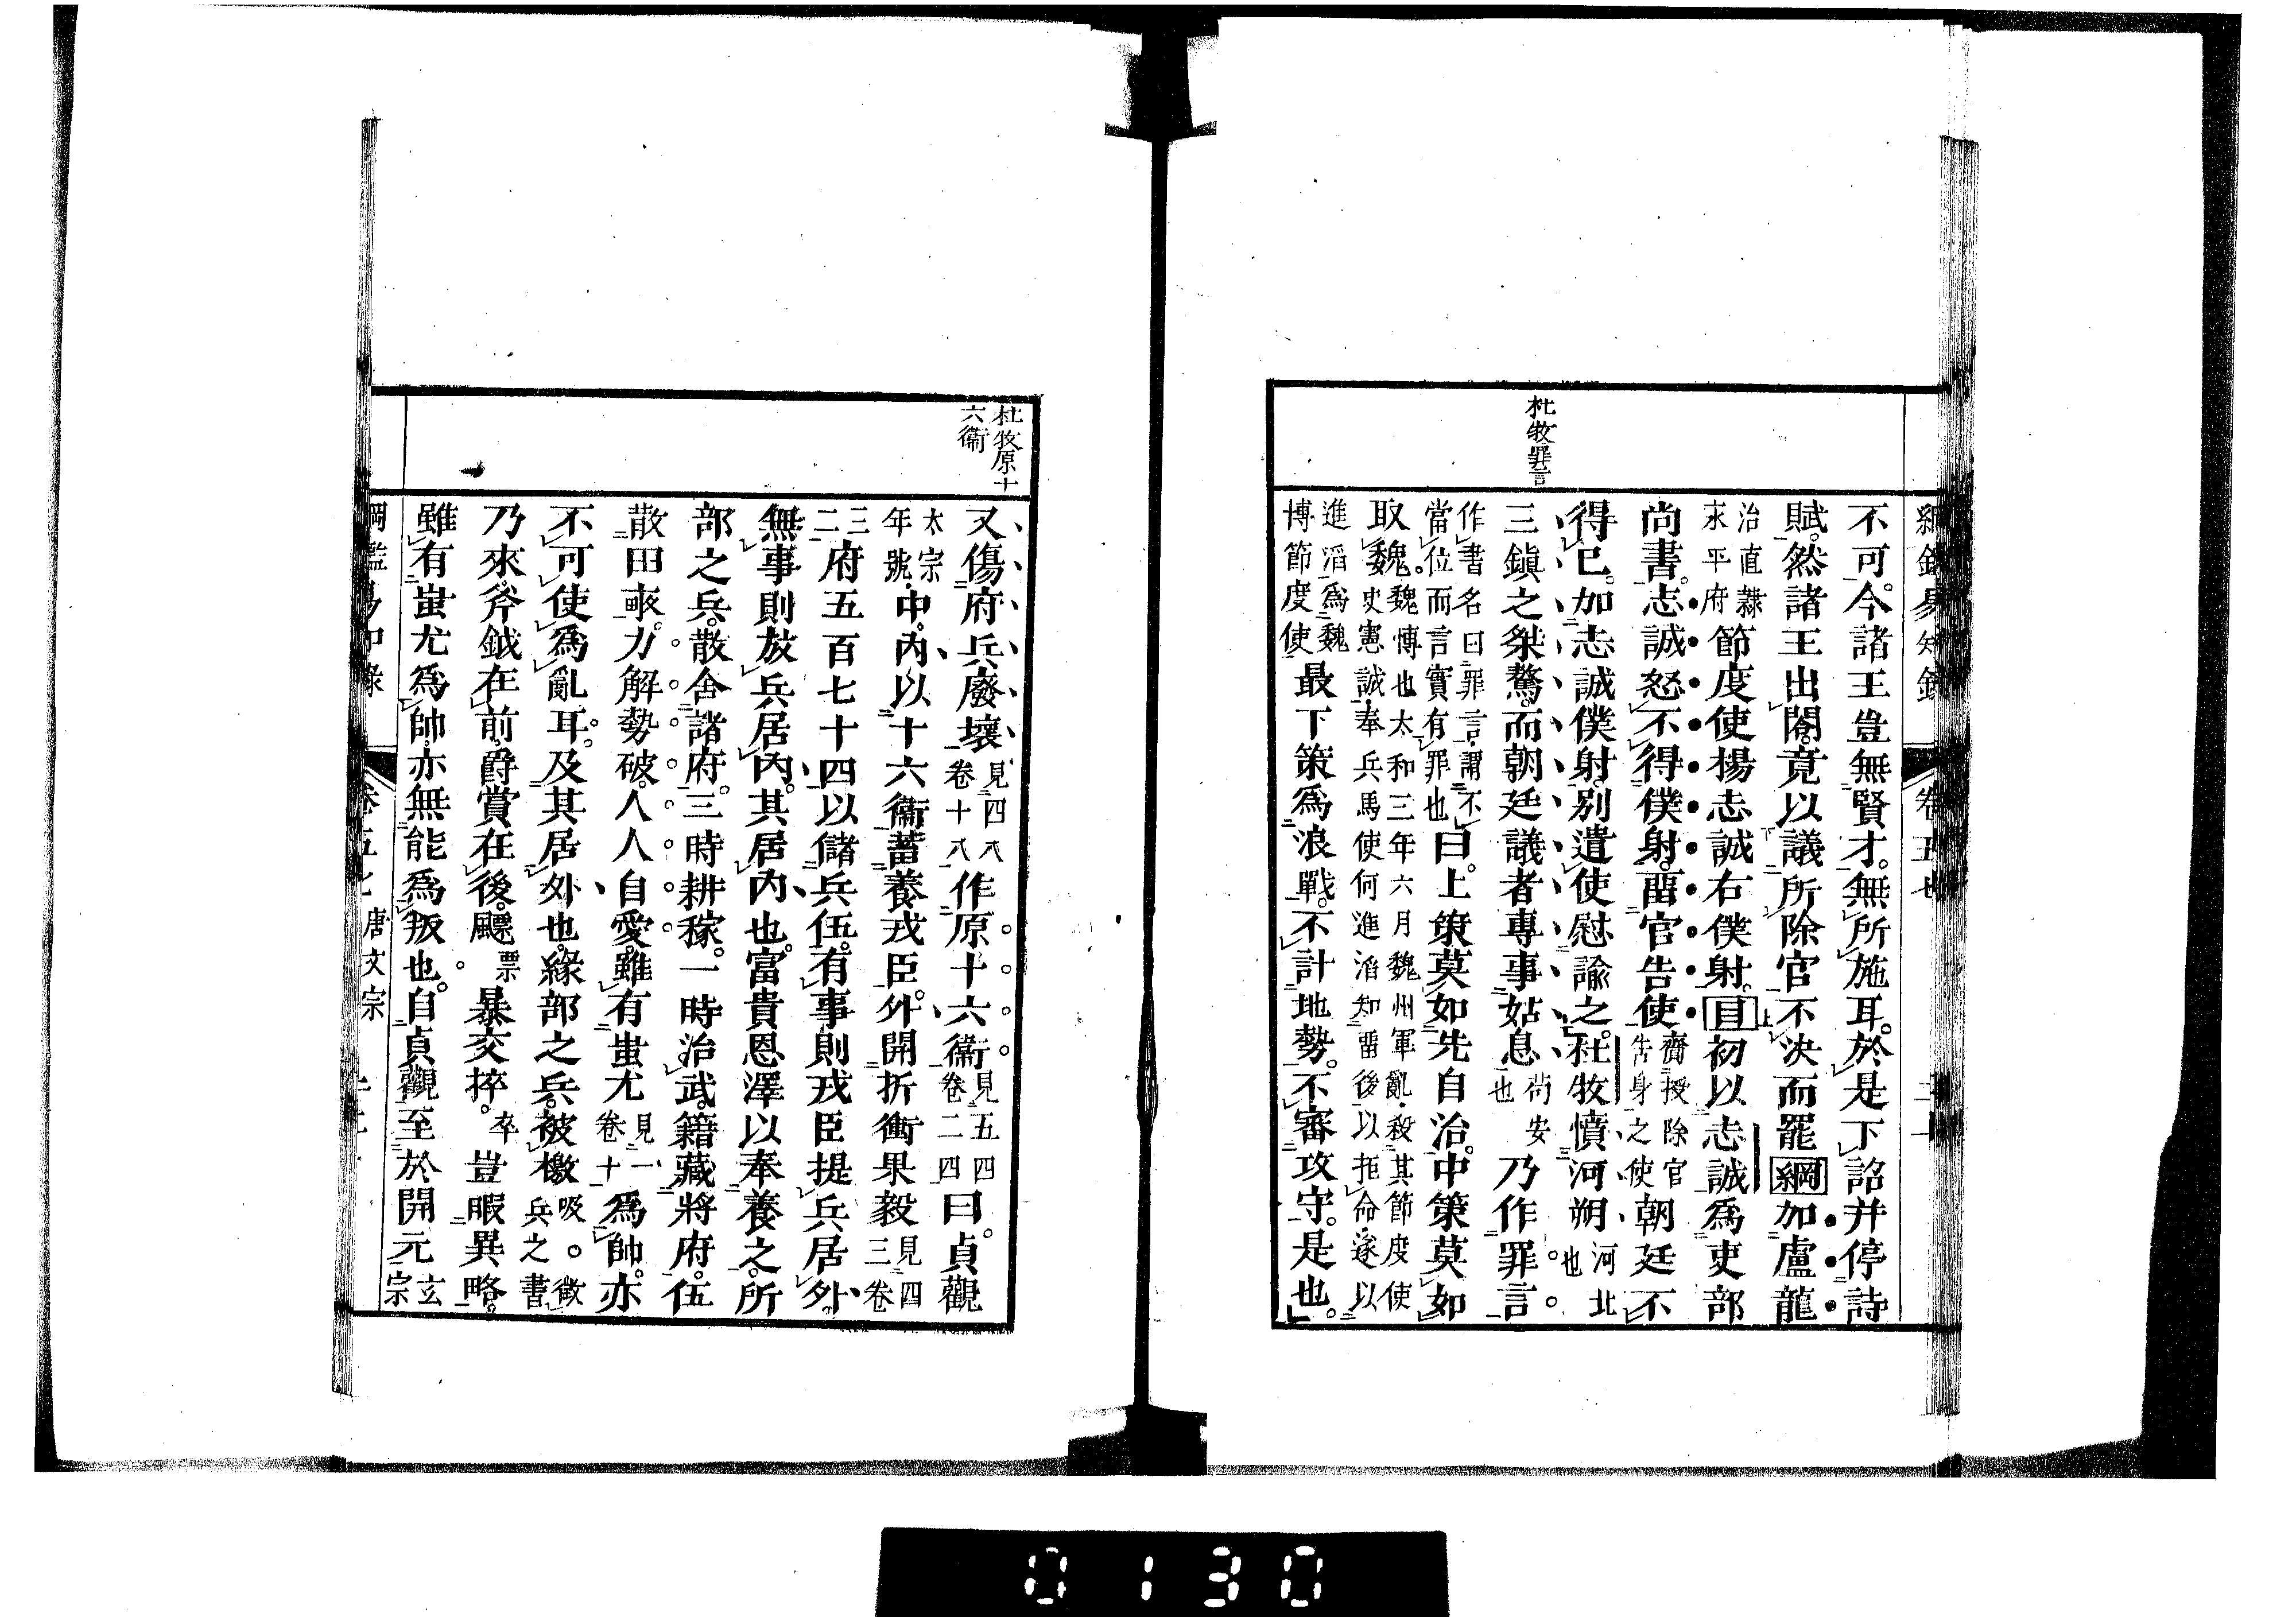 綱鑑易知錄 卷五七
杜牧罪言
不可今諸王豈無賢才。無所施耳。於是下詔并停詩
賦。然諸王出閣。竟以議所除官不決而罷綱加盧龍
治直隸永平府節度使楊志誠右僕射。目初以志誠為吏部
尚書。志誠怒不得僕射。畱官告使齎授除官告身之使朝廷不
得已。加志誠僕射。別遣使慰諭之。杜牧憤河朔河北也
三鎮之桀驁。而朝廷議者專事姑息苟安也乃作罪言
作書名曰罪言謂不當位而言實有罪也曰。上策莫如先自治。中策莫如
取魏。魏博也太和三年六月魏州軍亂殺其節度使史憲誠奉兵馬使何進滔知畱後以拒命遂以
進滔為魏博節度使最下策為浪戰。不計地勢。不審攻守。是也。
杜牧原十六衞
又傷府兵廢壞見四八卷十八作原十六衞見五四卷二四曰。貞觀
太宗年號中。內以十六衞蓄養戎臣。外開折衝果毅見四三卷
三二府五百七十四以儲兵伍。有事則戎臣提兵居外。
無事則放兵居內。其居內也。富貴恩澤以奉養之。所
部之兵。散舍諸府。三時耕稼。一時治武。籍藏將府。伍
散田畝。力解勢破。人人自愛。雖有蚩尤見一卷十為帥。亦
不可使為亂耳。及其居外也。緣部之兵。被檄吸。徵兵之書
乃來。斧鉞在前。爵賞在後。飃票暴交捽。卒豈暇異略。
雖有蚩尤為帥。亦無能為叛也。自貞觀至於開元玄宗
綱鑑易知錄 卷五七 唐文宗
0130